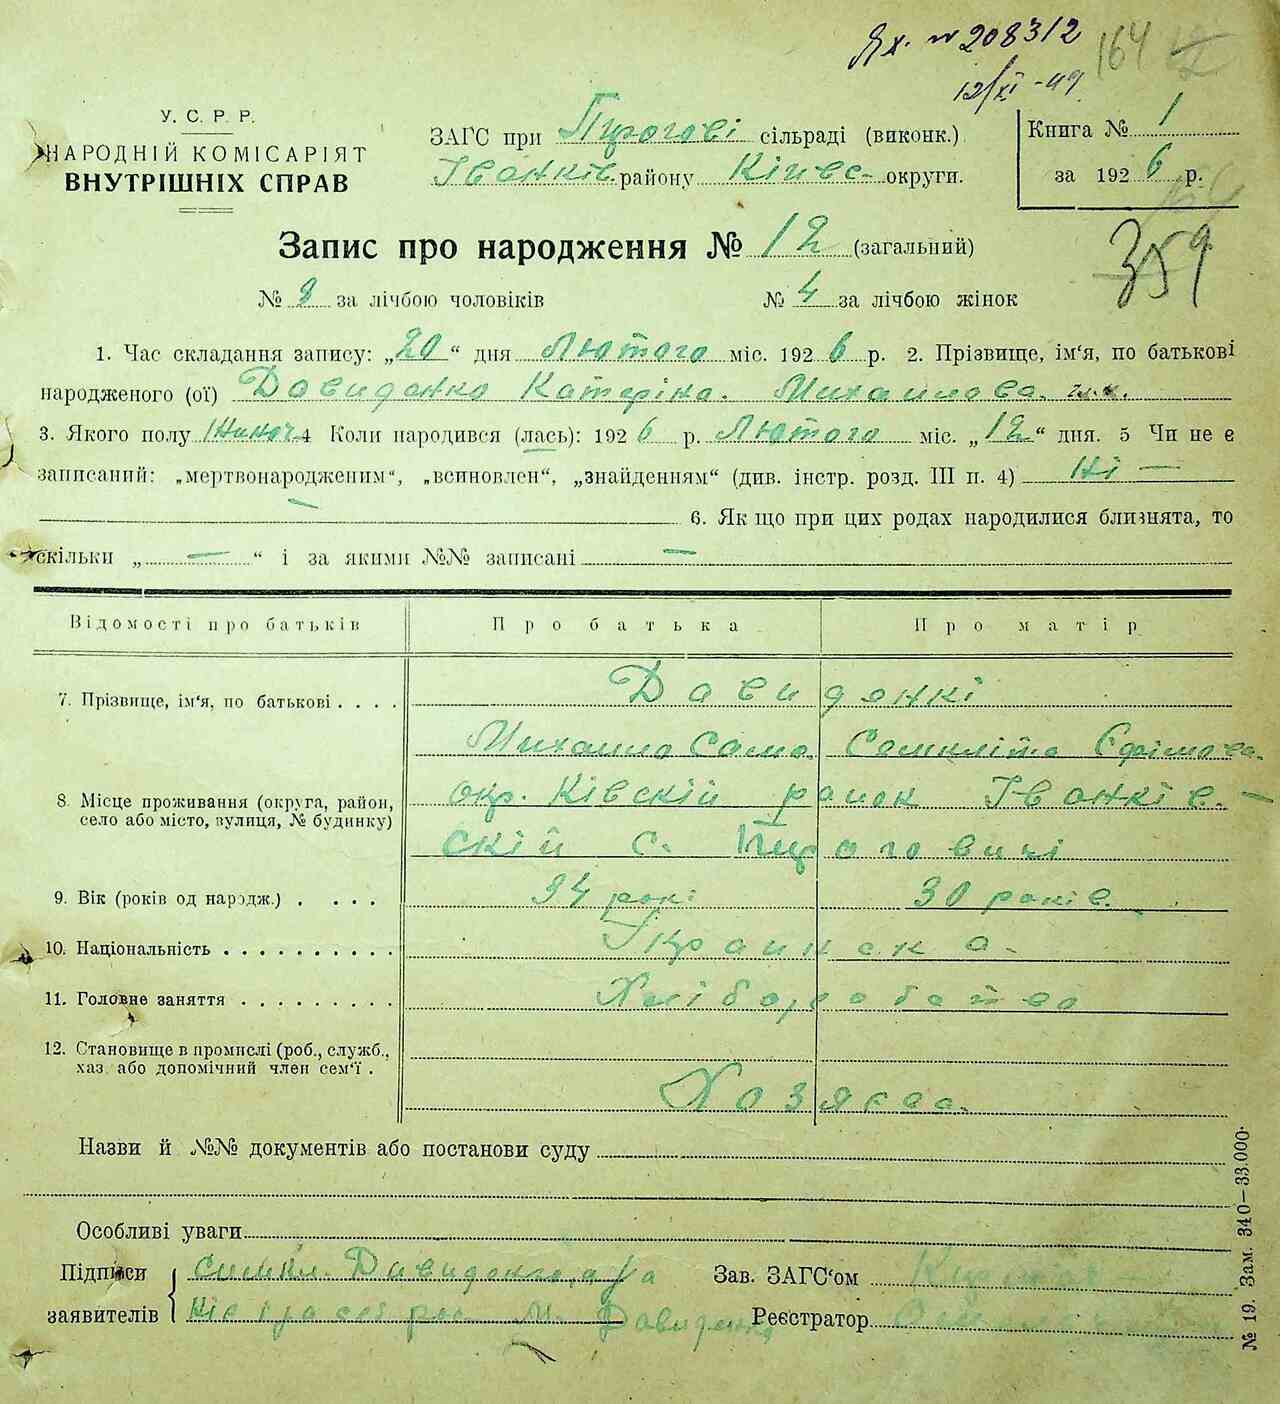 Вх. № 208312 164
12/XI -49
У. С. Р. Р.
НАРОДНІЙ КОМІСАРІЯТ
ВНУТРІШНІХ СПРАВ
ЗАГС при Пирогові сільраді (виконк.)
Іванків району Кіивс- округи.
Книга № 1
за 192 6 р.
359
Запис про народження № 12 (загальний)
№ 8 за лічбою чоловіків № 4 за лічбою жінок
1. Час складання запису: „20“ дня Лютого міс. 192 6 р. 2. Прізвище, ім'я, по батькові
народженого (ої) Давиденко Катеріна. Михаилова.
3. Якого полу Жиноч. 4 Коли народився (лась): 192 6 р. Лютого міс. „12“ дня. 5 Чи не є
записаний: „мертвонародженим“, „всиновлен“, „знайденням“ (див. інстр. розд. III п. 4) Ні —
— 6. Як що при цих родах народилися близнята, то
скільки „ — “ і за якими №№ записані —
Відомості про батьків Про батька Про матір
7. Прізвище, ім‘я, по батькові . . . . Давиденкі
Михаило Сама. Єфімова.
8. Місце проживання (округа, район, село або місто, вулиця, № будинку) окр. Ківскій раион Іванків-
скій с. Пироговичі
9. Вік (років од народж.) . . . . 34 рокі 30 років.
10. Національність . . . . . . . . . . Украинска.
11. Головне заняття . . . . . . . . . Хліборобство
12. Становище в промислі (роб., служб.,
хаз. або допомічний член сем‘ї .
Хозяєва.
Назви й №№ документів або постанови суду
Особливі уваги
Підписи Давиденко Зав. ЗАГС‘ом
заявителів М. Давиденко Реєстратор
№ 19. Зам. 340—33.000.